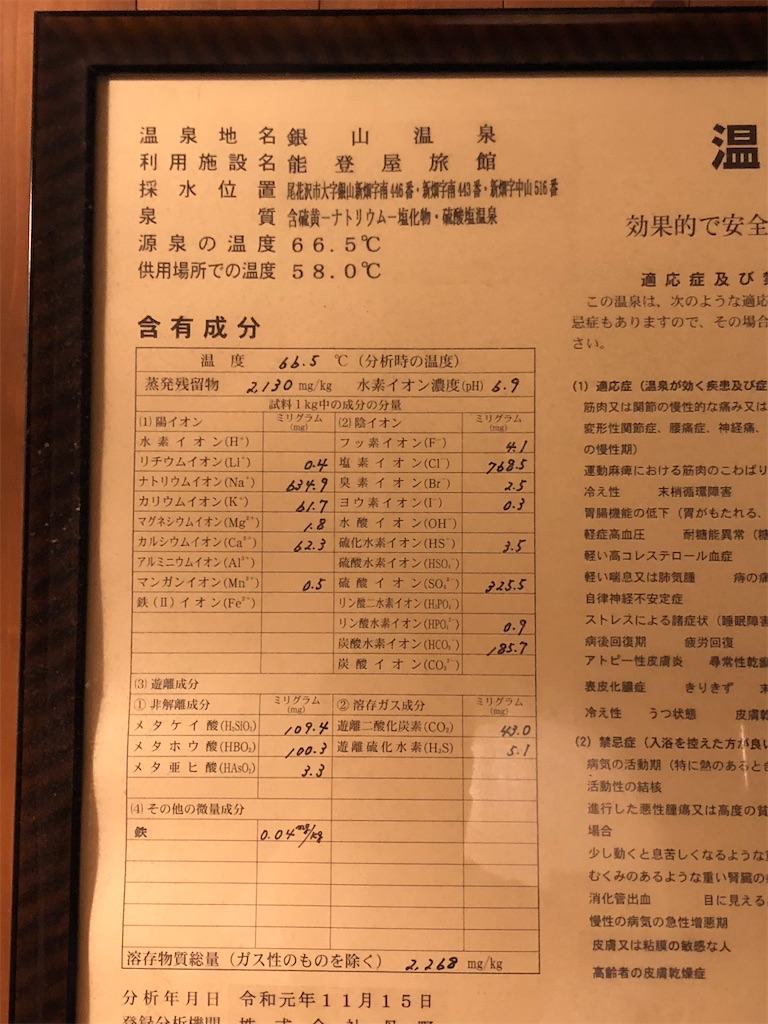 温泉地名 銀山温泉
利用施設名 能登屋旅館
採水位置 尾花沢市大字銀山新畑字南446番・新畑字南443番・新畑字中山516番
泉質 含硫黄−ナトリウム−塩化物・硫酸塩温泉
源泉の温度 66.5℃
供用場所での温度 58.0℃
含有成分
温度 66.5 ℃(分析時の温度)
蒸発残留物 2,130 mg/kg 水素イオン濃度(pH) 6.9
試料1kg中の成分の分量
(1)陽イオン ミリグラム(mg) (2)陰イオン ミリグラム(mg)
水素イオン(H⁺) フッ素イオン(F⁻) 4.1
リチウムイオン(Li⁺) 0.4 塩素イオン(Cl⁻) 768.5
ナトリウムイオン(Na⁺) 634.9 臭素イオン(Br⁻) 2.5
カリウムイオン(K⁺) 61.7 ヨウ素イオン(I⁻) 0.3
マグネシウムイオン(Mg²⁺) 1.8 水酸イオン(OH⁻)
カルシウムイオン(Ca²⁺) 62.3 硫化水素イオン(HS⁻) 3.5
アルミニウムイオン(Al³⁺) 硫酸水素イオン(HSO₄⁻)
マンガンイオン(Mn²⁺) 0.5 硫酸イオン(SO₄²⁻) 325.5
鉄(II)イオン(Fe²⁺) リン酸二水素イオン(H₂PO₄⁻)
リン酸水素イオン(HPO₄²⁻) 0.9
炭酸水素イオン(HCO₃⁻) 185.7
炭酸イオン(CO₃²⁻)
(3)遊離成分
①非解離成分 ミリグラム(mg) ②溶存ガス成分 ミリグラム(mg)
メタケイ酸(H₂SiO₃) 109.4 遊離二酸化炭素(CO₂) 43.0
メタホウ酸(HBO₂) 100.3 遊離硫化水素(H₂S) 5.1
メタ亜ヒ酸(HAsO₂) 3.3
(4)その他の微量成分
鉄 0.04mg/kg
溶存物質総量(ガス性のものを除く) 2,268 mg/kg
分析年月日 令和元年11月15日
登録分析機関 株式会社
温
効果的で安全
適応症及び
この温泉は、次のような適応
忌症もありますので、その場合
さい。
(1) 適応症(温泉が効く疾患及び症
筋肉又は関節の慢性的な痛み又は
変形性関節症、腰痛症、神経痛、
の慢性期)
運動麻痺における筋肉のこわばり
冷え性 末梢循環障害
胃腸機能の低下(胃がもたれる、
軽症高血圧 耐糖能異常(糖
軽い高コレステロール血症
軽い喘息又は肺気腫 痔の痛
自律神経不安定症
ストレスによる諸症状(睡眠障害
病後回復期 疲労回復
アトピー性皮膚炎 尋常性乾癬
表皮化膿症 きりきず 末
冷え性 うつ状態 皮膚乾
(2) 禁忌症(入浴を控えた方が良い
病気の活動期(特に熱のあるとき
活動性の結核
進行した悪性腫瘍又は高度の貧
場合
少し動くと息苦しくなるような重
むくみのあるような重い腎臓の
消化管出血 目に見える
慢性の病気の急性増悪期
皮膚又は粘膜の敏感な人
高齢者の皮膚乾燥症